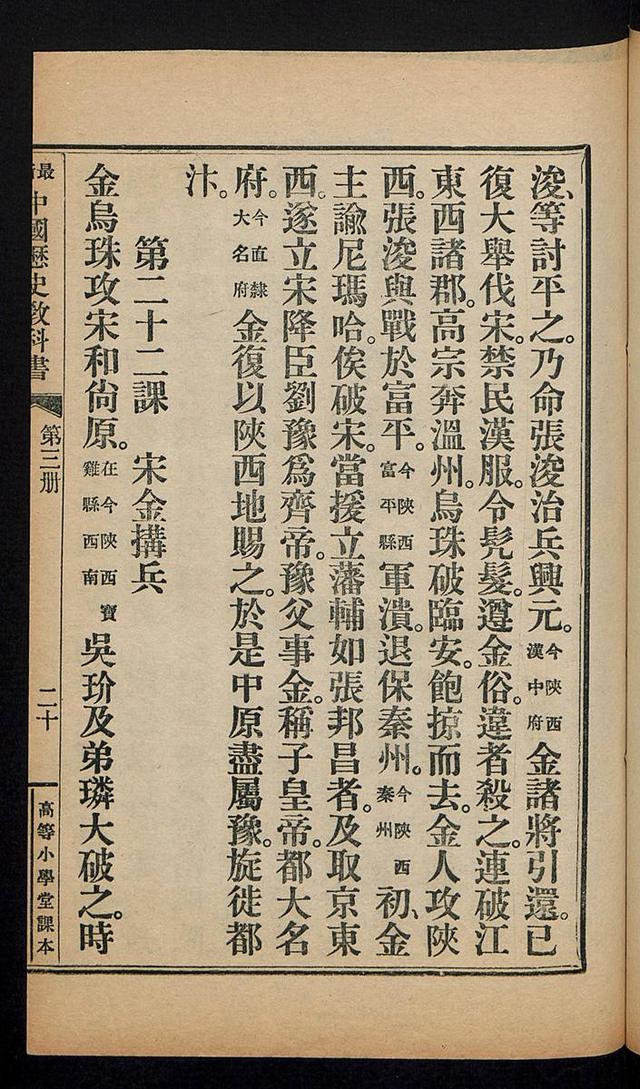 浚、等討平之。乃命張浚治兵興元。今陝西漢中府金諸將引還。已
復大舉伐宋。禁民漢服。令髡髮。遵金俗。違者殺之。連破江
東西諸郡。高宗奔溫州。烏珠破臨安。飽掠而去。金人攻陝
西。張浚與戰於富平。今陝西富平縣軍潰。退保秦州。今陝西秦州初、金
主諭尼瑪哈。俟破宋。當援立藩輔如張邦昌者。及取京東
西。遂立宋降臣劉豫爲齊帝。豫父事金。稱子皇帝。都大名
府。今直隸大名府金復以陝西地賜之。於是中原盡屬豫。旋徙都
汴。
第二十二課　宋金搆兵
金烏珠攻宋和尙原。在今陝西寶雞縣西南吳玠及弟璘大破之。時
最新中國歷史敎科書　第三册　二十　高等小學堂課本